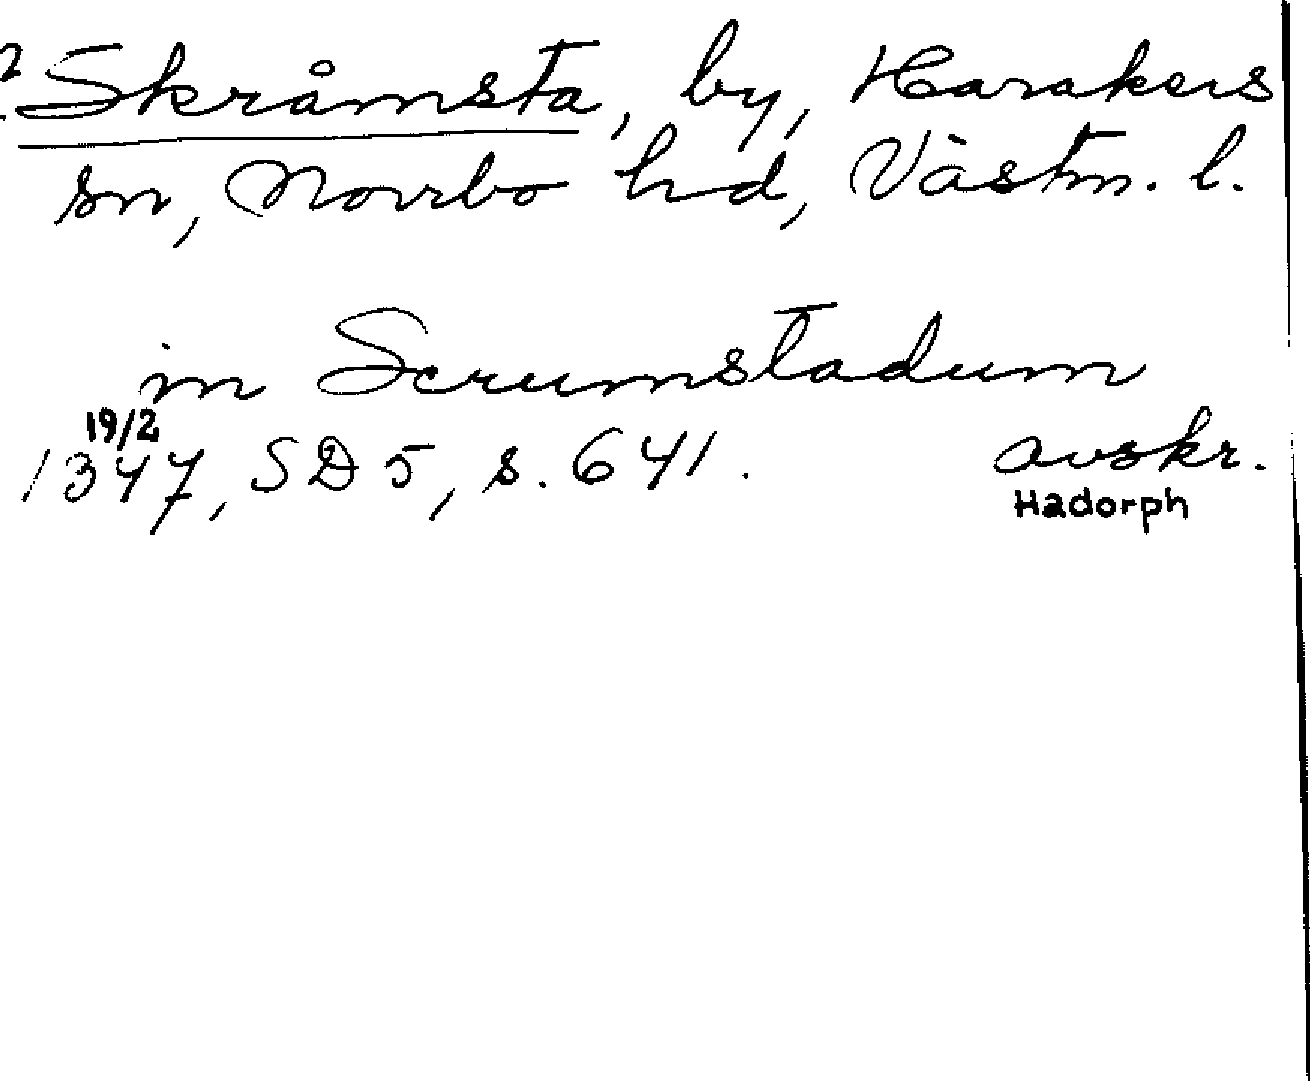 ? Skråmsta, by, Harakers
sn, Norrbo hd, Västm. l.
in Scrumstadum
19/2
1347, SD 5, s. 641. avskr.
Hadorph